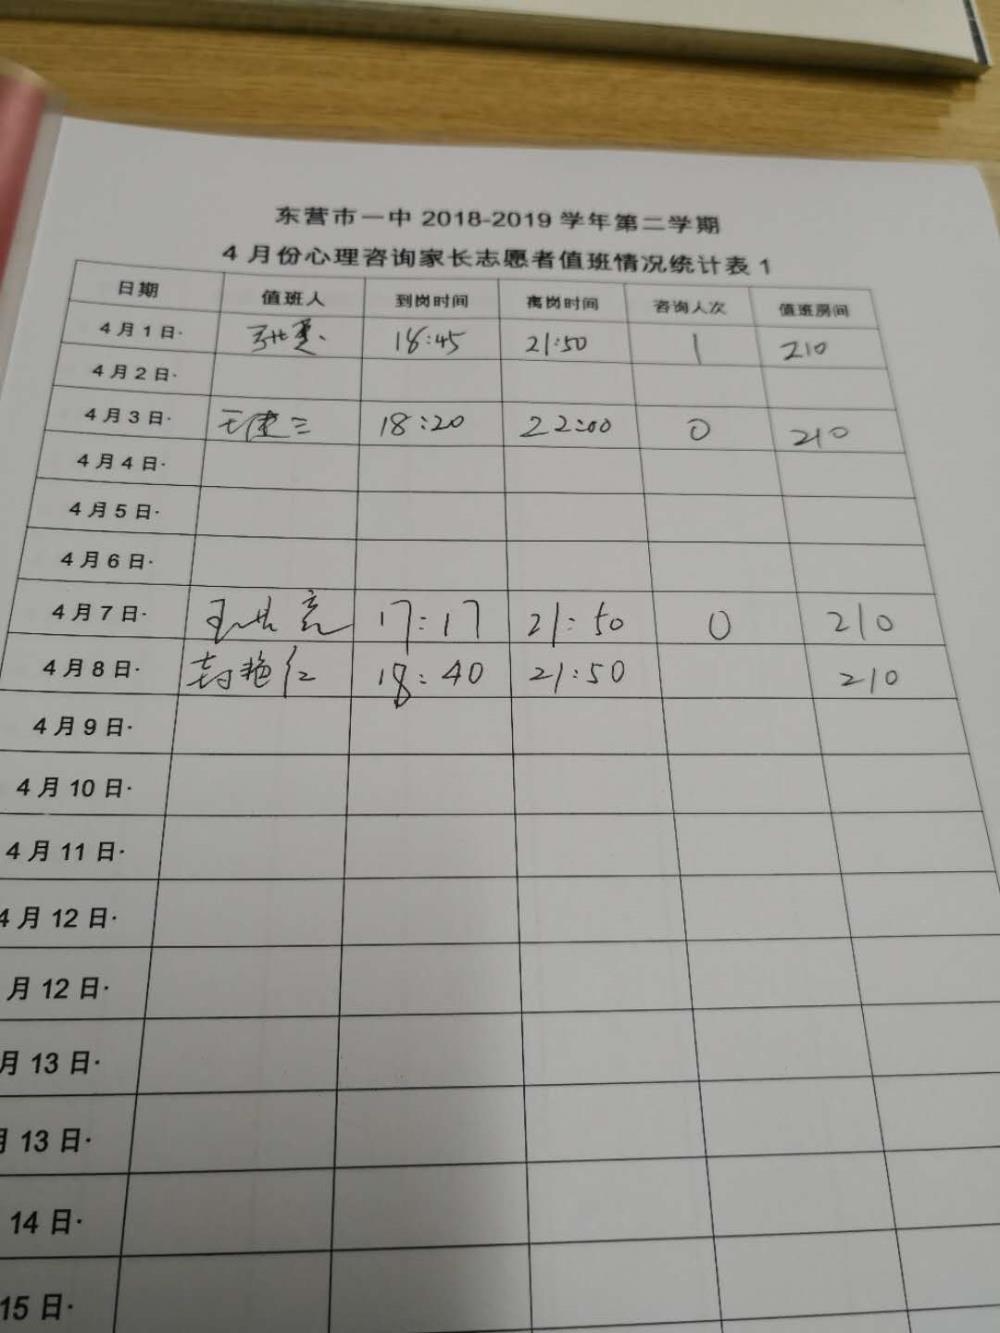 东营市一中 2018-2019 学年第二学期
4 月份心理咨询家长志愿者值班情况统计表 1
日期 值班人 到岗时间 离岗时间 咨询人次 值班房间
4 月 1 日· 18:45 21:50 1 210
4 月 2 日·
4 月 3 日· 18:20 22:00 0 210
4 月 4 日·
4 月 5 日·
4 月 6 日·
4 月 7 日· 17:17 21:50 0 210
4 月 8 日· 封艳红 18:40 21:50 210
4 月 9 日·
4 月 10 日·
4 月 11 日·
4 月 12 日·
月 12 日·
月 13 日·
月 13 日·
14 日·
15 日·